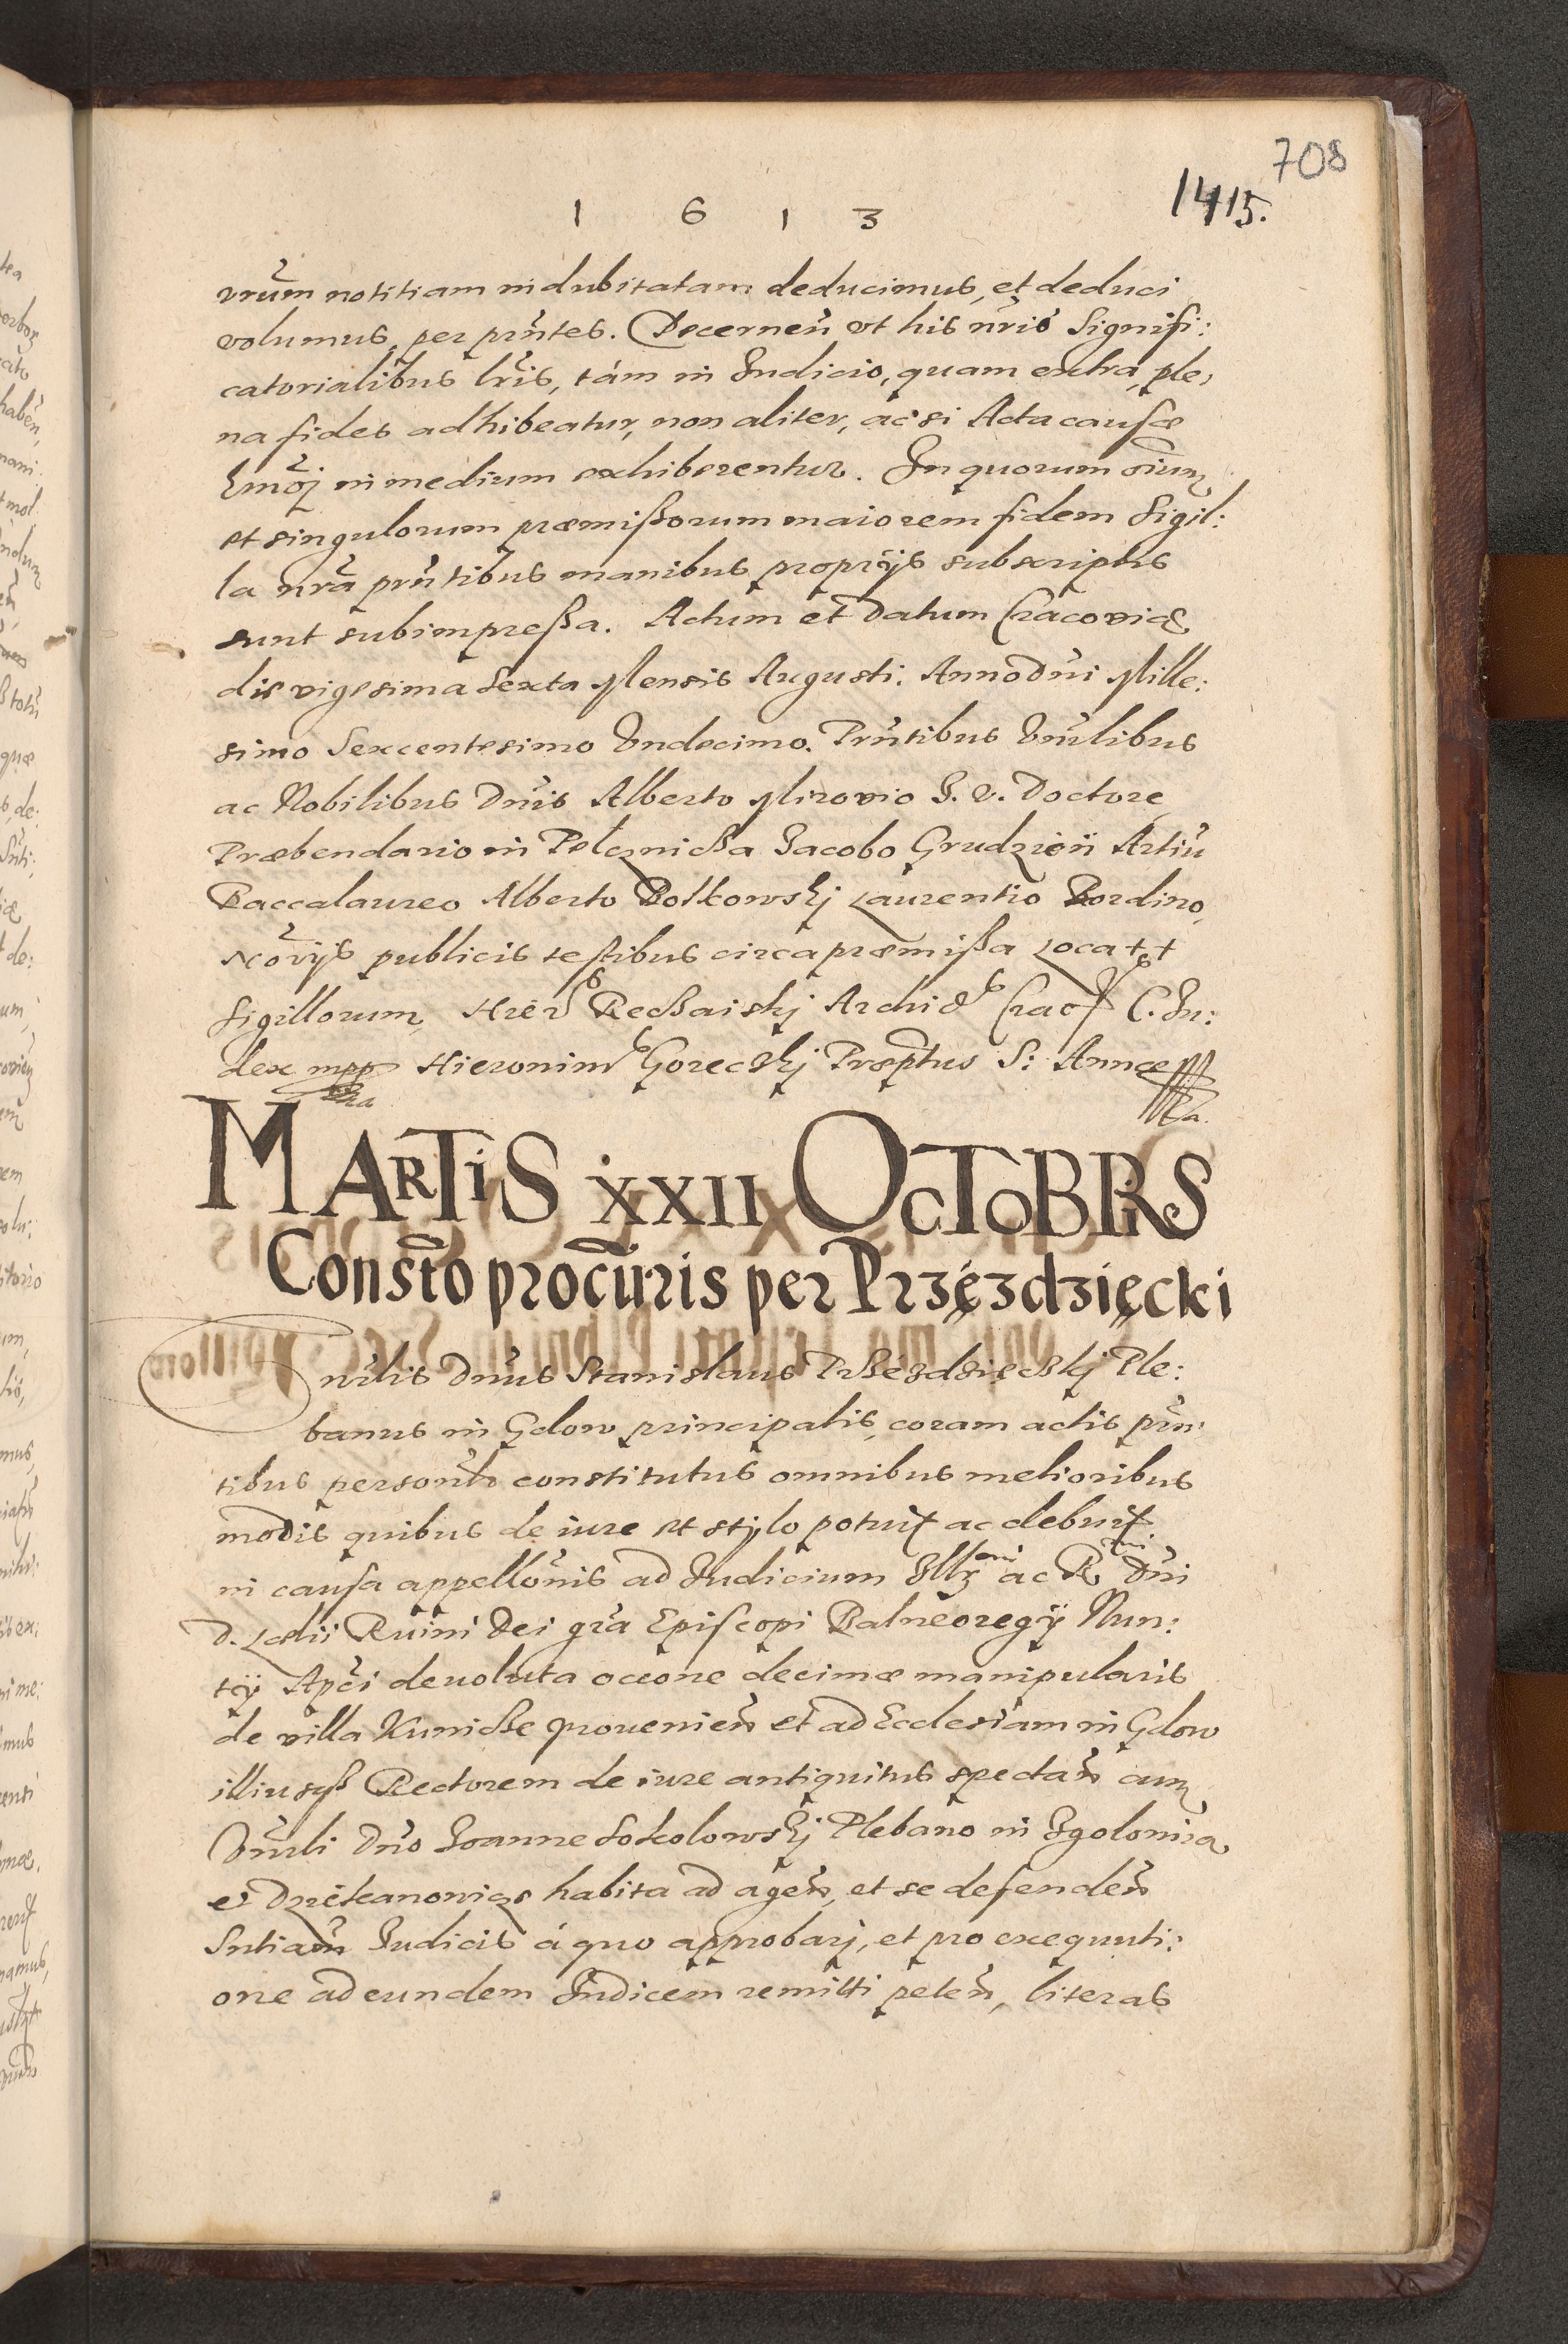 708
1415.
1 6 1 3
vrũm notitiam indubitatam deducimus, et deduci
volumus, per prñtes. Decerneñ vt his nr̃is Signifi:
catorialibus lr̃is, tàm in Iudicio, quam extra, ple,
na fides adhibeatur, non aliter, ac si Acta causæ
in medium exhiberentur. In quorum oĩum
et singulorum præmißorum maiorem fidem Sigil:
la nr̃a prñtibus manibus proprijs subscriptis
sunt subimpreßa. Actum et Datum Cracoviæ
die vigesima Sexta Mensis Augusti. Anno Dñi Mille:
simo Sexcentesimo Vndecimo. Prñtibus Vñlibus
ac Nobilibus Dñis Alberto Mirovio I. V. Doctore
Præbendario in Pełcznicza Iacobo Grudzień Artiũ
Baccalaureo Alberto Bolkowskj Laurentio Bordino,
Nõrijs publicis testibus circa præmißa Loca ++
Sigillorum, Hier Reczaiskj Archid Crac C. Iu:
dex mpp Hieronim9 Goreczkj Præptus S: Annæ
MARTIS XXII OCTOBRIS
Consto procuris per Przézdzięcki
Vñrlis Dñus Stanislaus Przézdzięczkj Ple:
banus in Gdow principalis, coram actis prñ:
tibus personlr constitutus omnibus melioribus
modis quibus de iure et stylo potuit ac debuit
in causa appellõnis ad Iudicium Illmi ac Rmi Dñi
D. Lælii Ruini Dei gr̃a Episcopi Balneoregij Nun:
tij Apci devoluta occone decimæ manipularis
de villa Kunicze provenieñ et ad Ecclesiam in Gdow
illiusqß Rectorem de iure antiquitus spectañ cum
Vñrli Dño Ioanne Sokolowskj Plebano in Igolomia
et Dziekanowice habita ad ageñ, et se defendeñ
Sntiam Iudicis à quo approbarj, et pro exequuti:
one ad eundem Iudicem remitti peteñ, literas